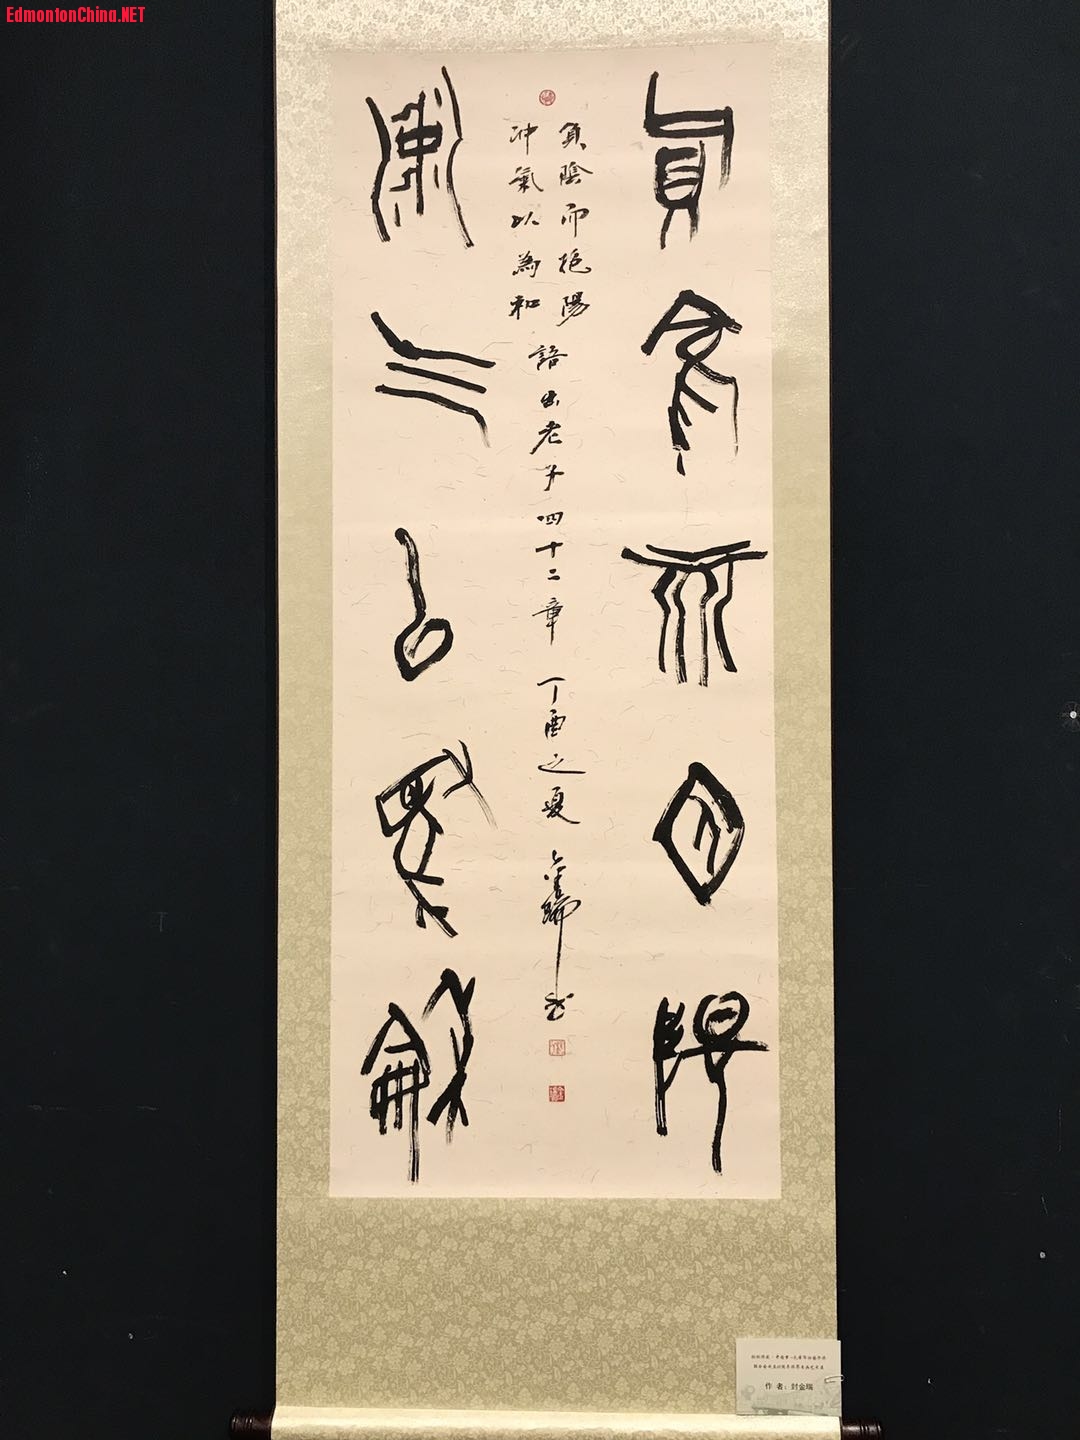 EdmontonChina.NET
負陰而抱陽
負陰而抱陽
冲氣以為和
語出老子四十二章 丁酉之夏 金瑞書
沖气以為龢
作 者：封金瑞